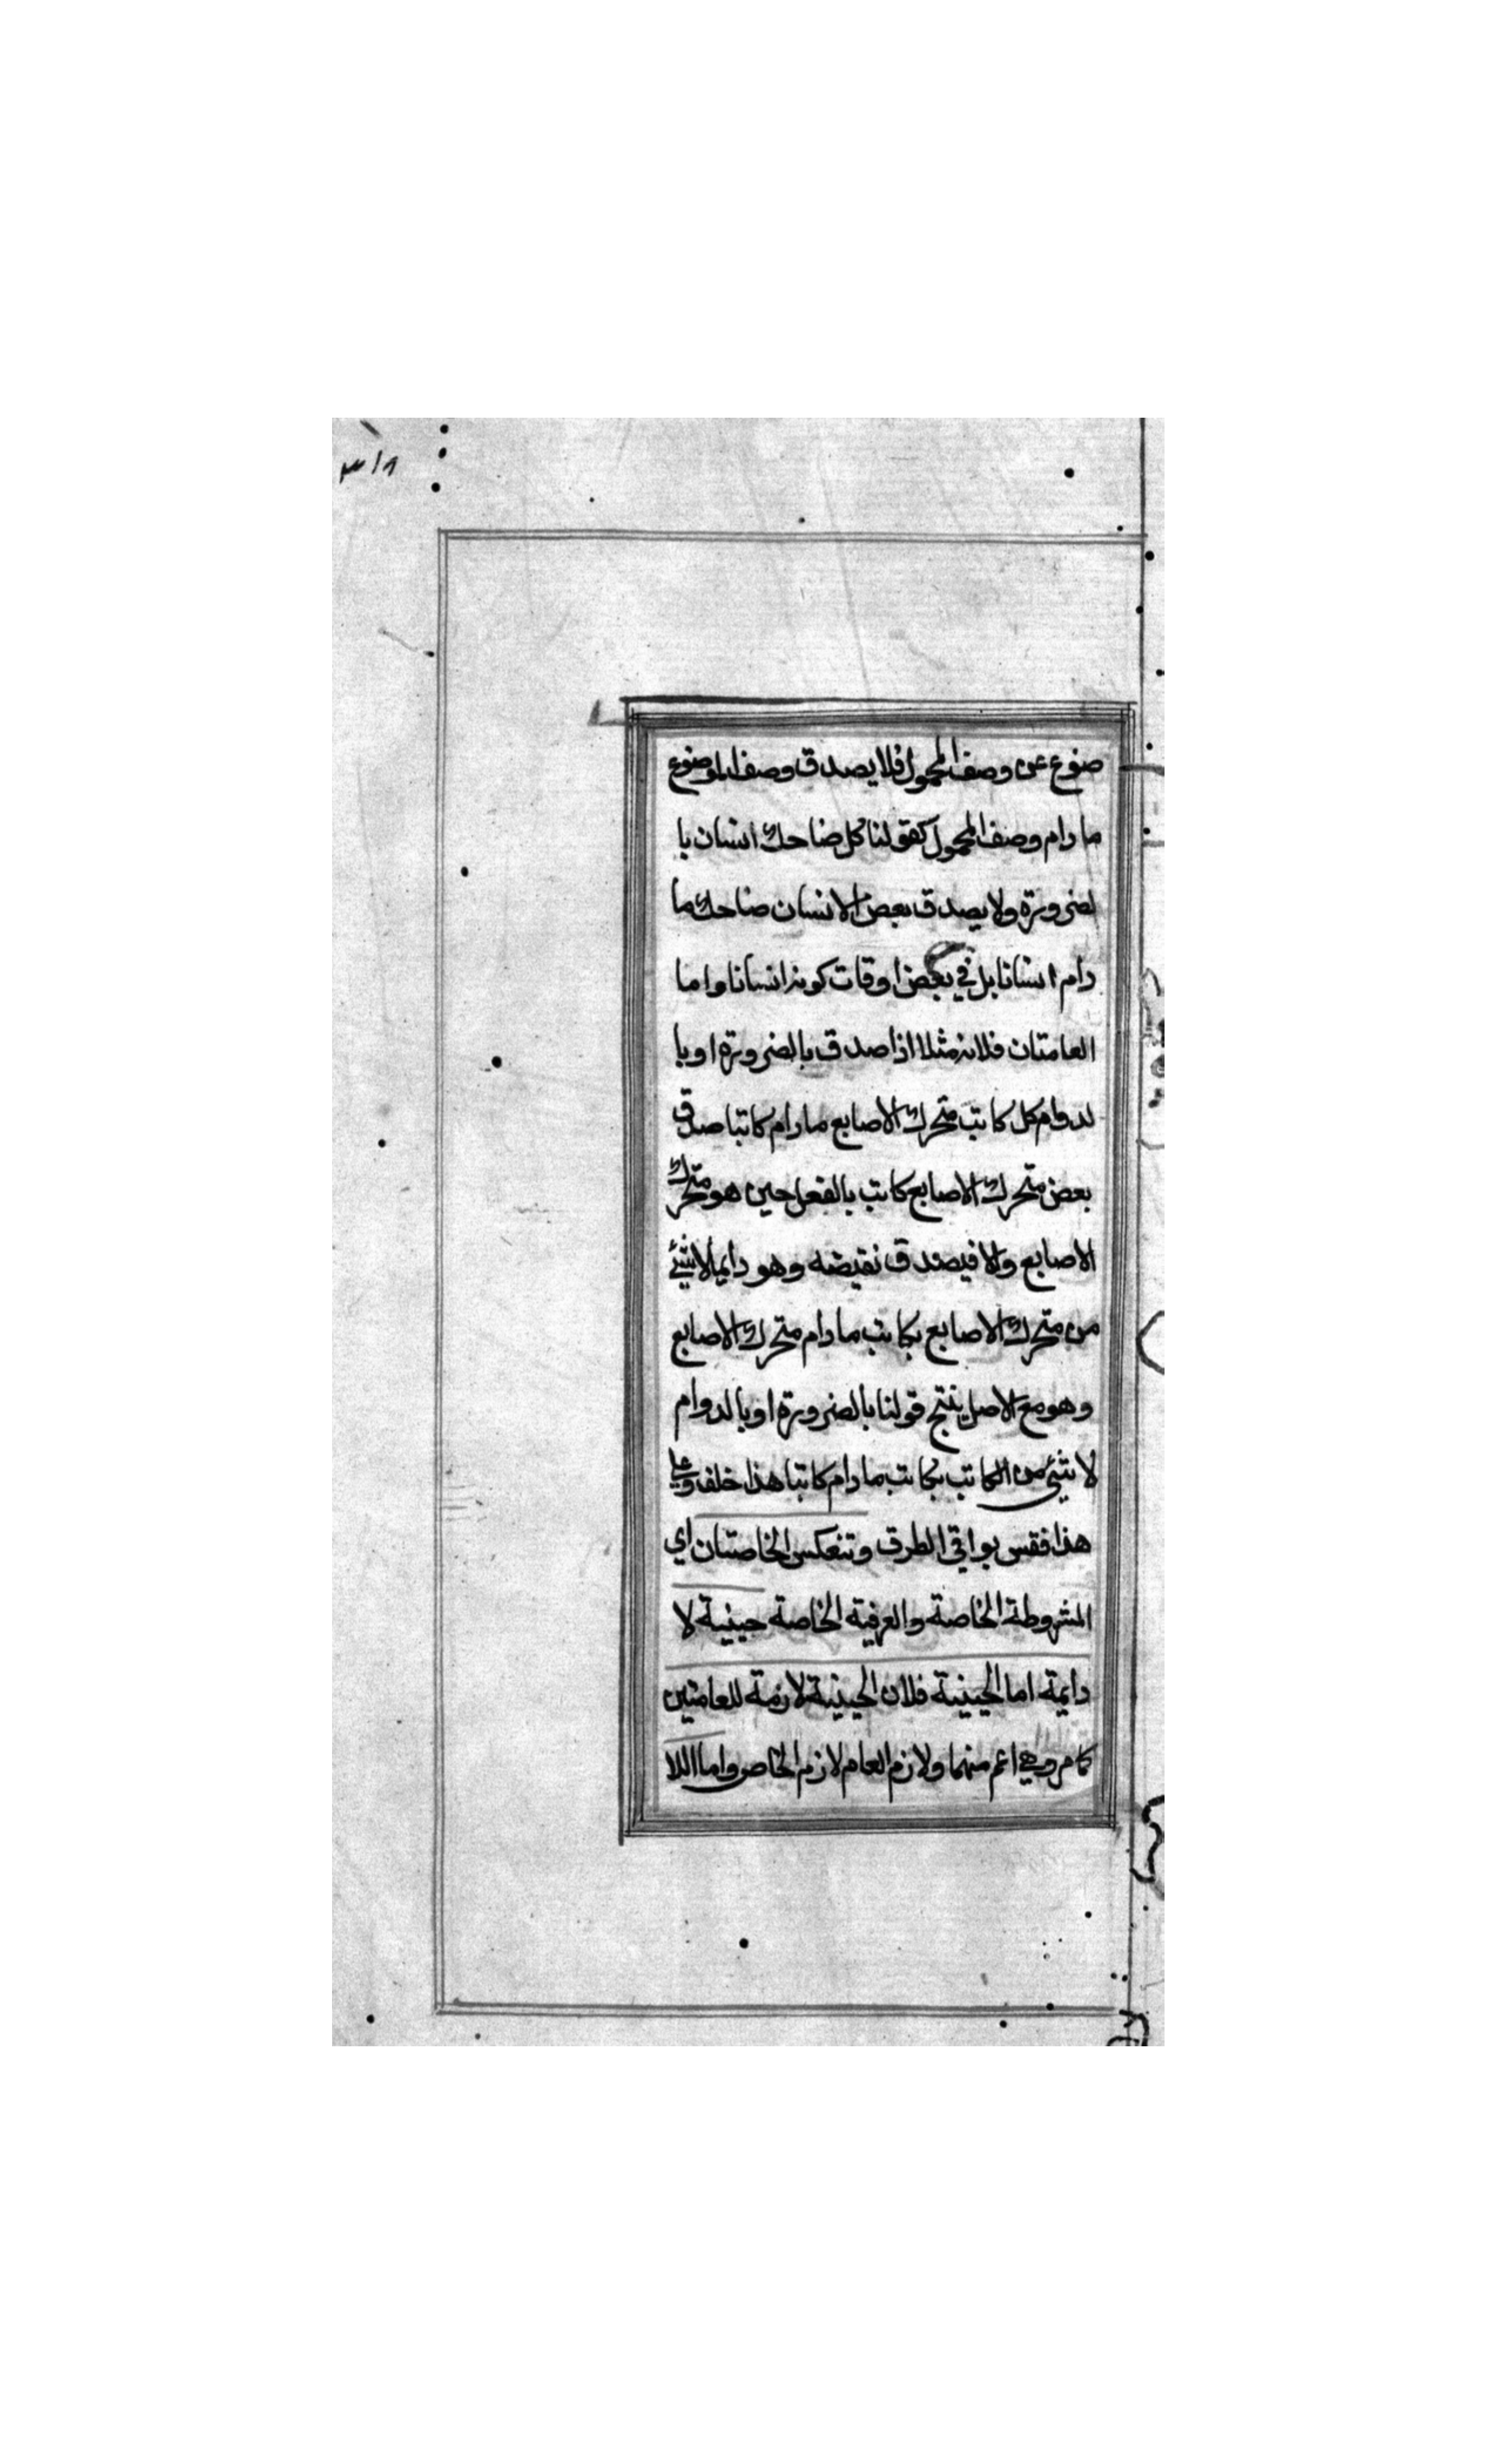 ٣١٩
ضوع عن وصف المحمول فلا يصدق وصف الموضوع
ما دام وصف المحمول كقولنا كل ضاحك انسان با
لضرورة ولا يصدق بعض الانسان ضاحك ما
دام انسانا بل في بعض اوقات كونه انسانا واما
العامتان فلانه مثلا اذا صدق بالضرورة او با
لدوام كل كاتب متحرك الاصابع ما دام كاتبا صدق
بعض متحرك الاصابع كاتب بالفعل حين هو متحرك
الاصابع والا فيصدق نقيضه وهو دايما لا شئ
من متحرك الاصابع بكاتب ما دام متحرك الاصابع
وهو مع الاصل ينتج قولنا بالضرورة او بالدوام
لا شئ من الكاتب بكاتب ما دام كاتبا هذا خلف وعلى
هذا فقس بواقي الطرق وتنعكس الخاصتان اي
المشروطة الخاصة والعرفية الخاصة حينية لا
دايمة اما الحينية فلان الحينية لازمة للعامتين
كما مر وهي اعم منهما ولازم العام لازم الخاص واما اللا